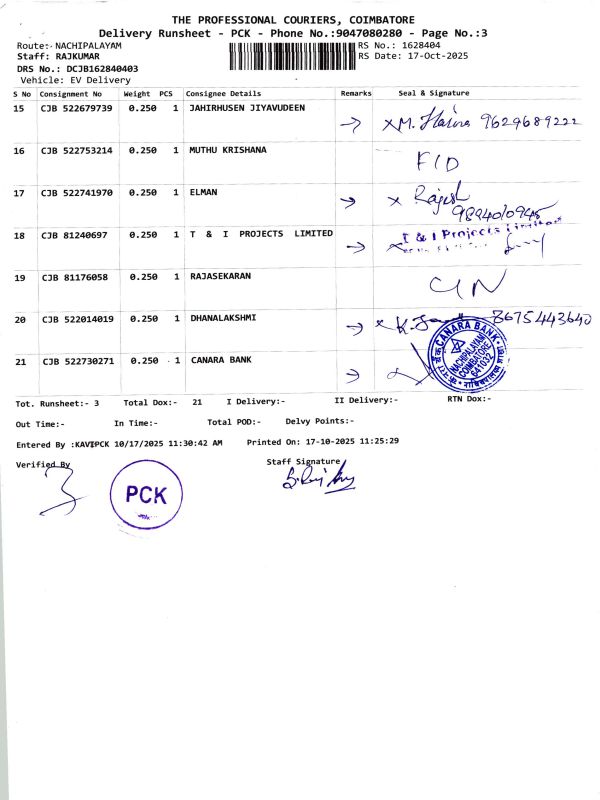 THE PROFESSIONAL COURIERS, COIMBATORE
Delivery Runsheet - PCK - Phone No.:9047080280 - Page No.:3
Route:- NACHIPALAYAM RS No.: 1628404
Staff: RAJKUMAR RS Date: 17-Oct-2025
DRS No.: DCJB162840403
Vehicle: EV Delivery
S No Consignment No Weight PCS Consignee Details Remarks Seal & Signature
15 CJB 522679739 0.250 1 JAHIRHUSEN JIYAVUDEEN
9629689222
16 CJB 522753214 0.250 1 MUTHU KRISHANA
F/D
17 CJB 522741970 0.250 1 ELMAN
x Rajesh
18 CJB 81240697 0.250 1 T & I PROJECTS LIMITED
T & I Projects Limited
19 CJB 81176058 0.250 1 RAJASEKARAN
C/N
20 CJB 522014019 0.250 1 DHANALAKSHMI
8675443640
21 CJB 522730271 0.250 1 CANARA BANK
CANARA BANK
NACHIPALAYAM
COIMBATORE
641032
Tot. Runsheet:- 3 Total Dox:- 21 I Delivery:- II Delivery:- RTN Dox:-
Out Time:- In Time:- Total POD:- Delvy Points:-
Entered By :KAVIPCK 10/17/2025 11:30:42 AM Printed On: 17-10-2025 11:25:29
Verified By Staff Signature
PCK